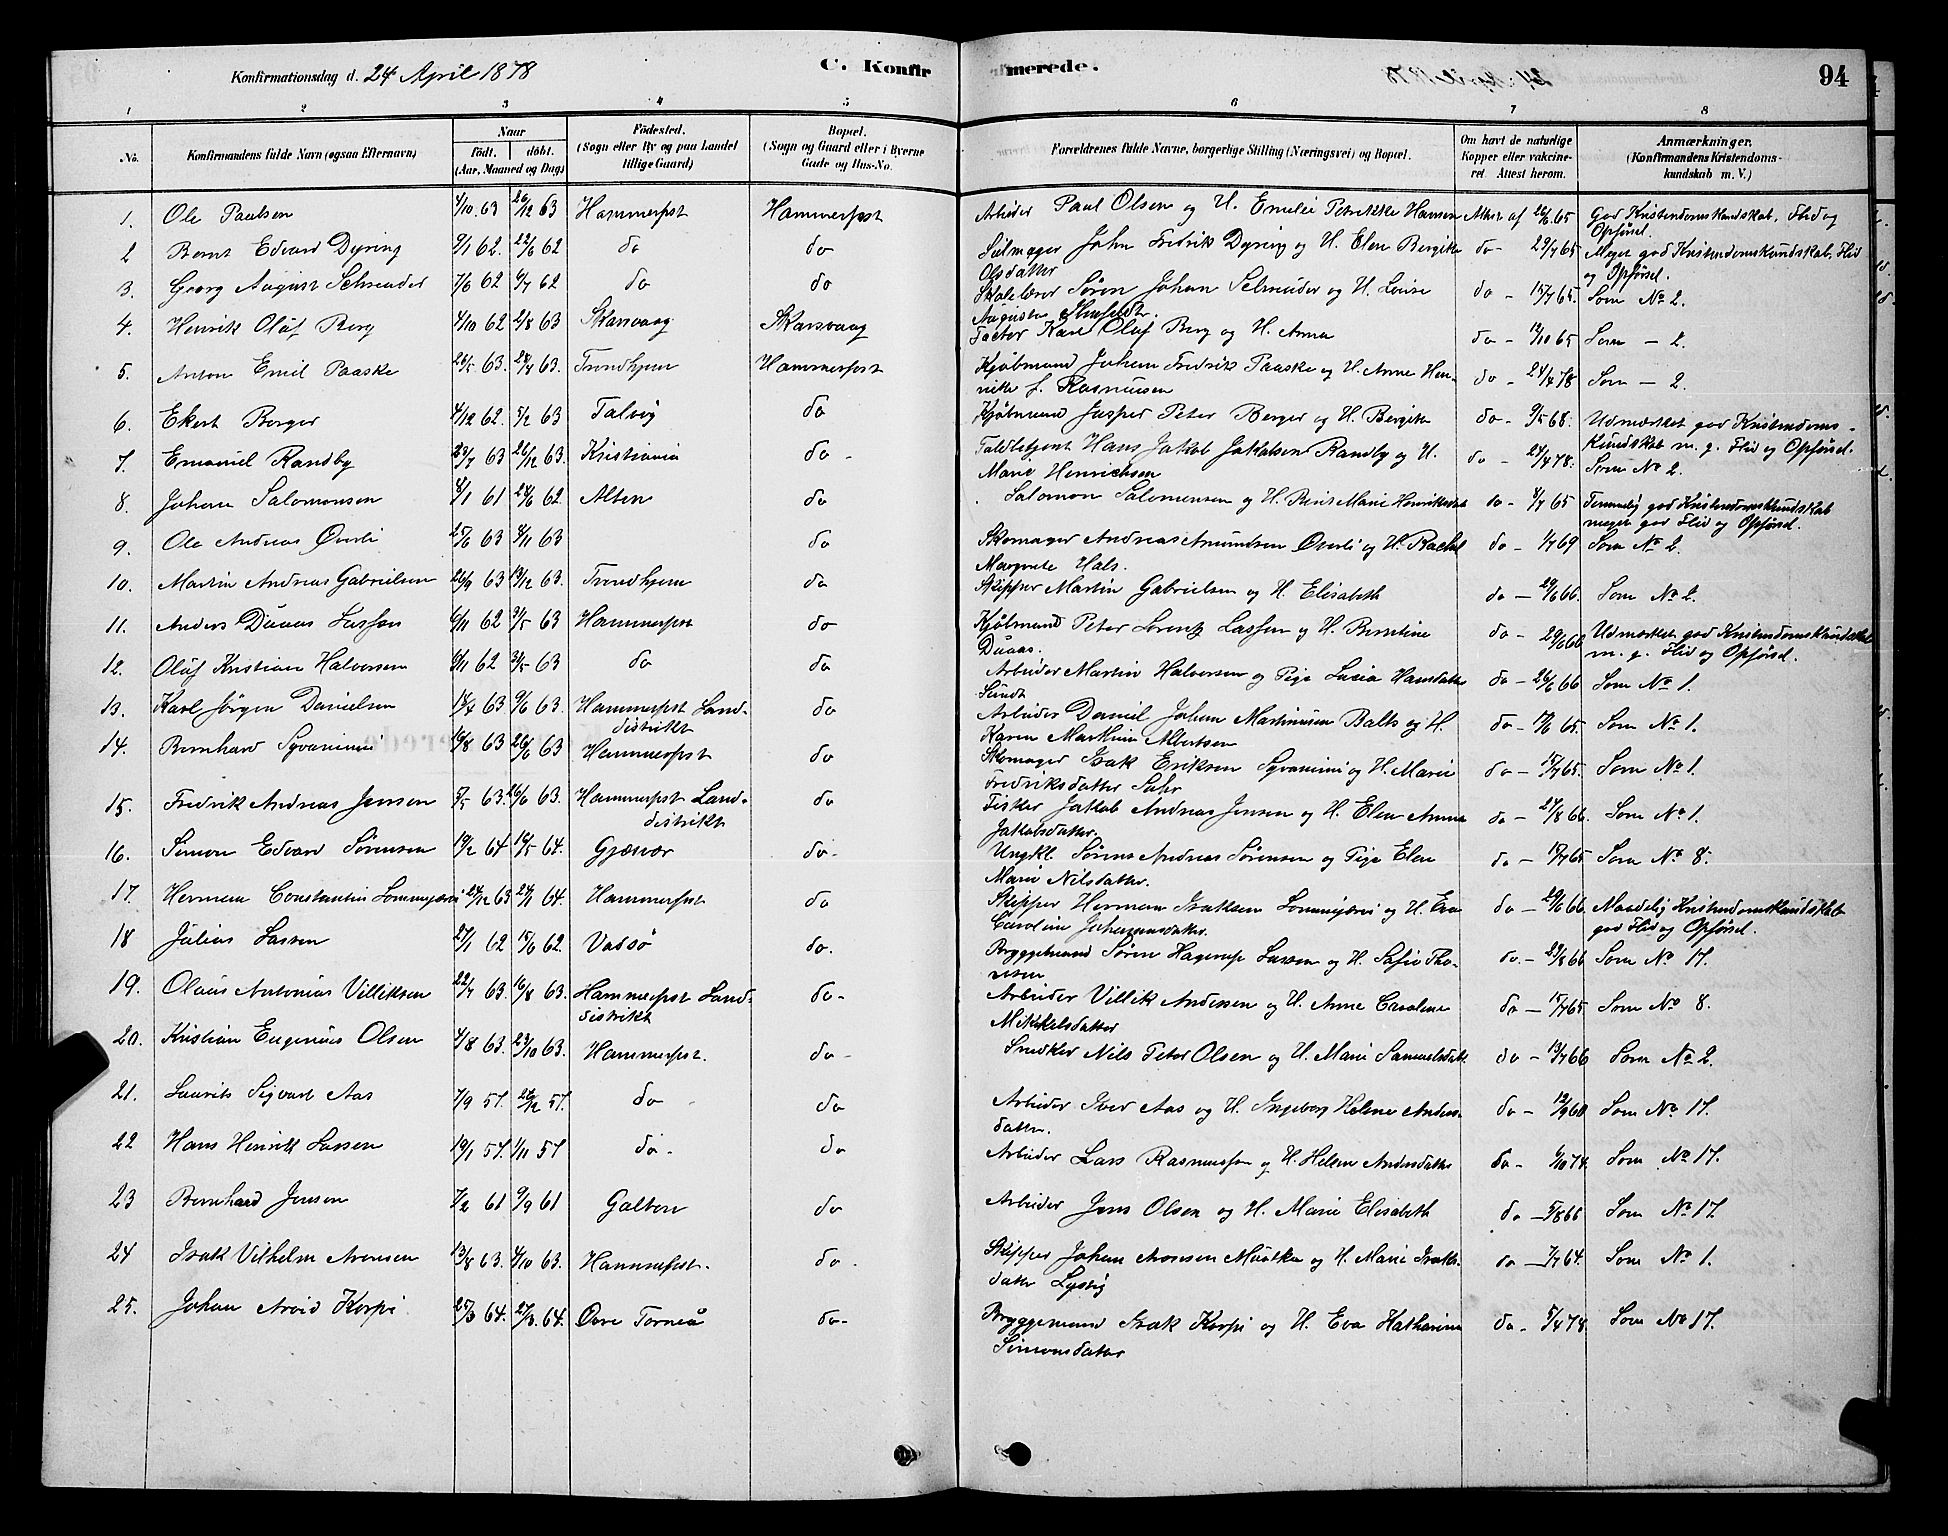 Konfirmationsdag d. 24 April 1878
C. Konfirmerede.
94
1 2 3 4 5 6 7 8
No. Konfirmandens fulde Navn (ogsaa Efternavn) Naar født. døbt. (Aar, Maaned og Dag) Fødested. (Sogn eller By og paa Landet tillige Gaard) Bopæl. (Sogn og Gaard eller i Byerne Gade og Hus-No. Forældrenes fulde Navne, borgerlige Stilling (Næringsvei) og Bopæl. Om havt de naturlige Kopper eller vakcineret Attest herom. Anmærkninger. (Konfirmandens Kristendomskundskab m. V.)
1. Ole Paulsen 4/10 63 26/12 63 Hammerfest Hammerfest Arbeider Paul Olsen og H. Emelie Petrikke Hansen Attest af 26/6 65 God Kristendomskundskab, Flid og Opførsel.
2 Bernt Edvard Dyring 9/1 62. 22/6 62 do do Seilmager John Fredrik Dyring og H. Elen Bergitte Olsdatter do - 29/7 65 Meget god Kristendomskundskab, Flid og Opførsel.
3. Georg August Schrøder 7/6 62 6/7 62 do do Skolelærer Søren Johan Schrøder og H. Louise Augusta do - 15/7 65. Som No 2.
4. Henrik Olaf Berg 4/10 62 2/8 63 Skarsvaag Skarsvaag Factor Karl Olaf Berg og H. Anna do - 12/10 65 Som - 2.
5. Anton Emil Paaske 26/5 63. 28/7 63. Trondhjem Hammerfest Kjøbmand Johan Fredrik Paaske og H. Anne Henrikke f. Rasmussen do - 24/4 78 Som - 2.
6. Ekert Berger 4/12 62. 5/2 63 Talvig do Kjøbmand Jasper Peter Berger og H. Bergitte do - 9/5 68. Udmærket god Kristendomskundskab m. g. Flid og Opførsel.
7. Emanuel Randby 29/7 63 26/12 63. Kristiania do - Toldbetjent Hans Jakob Jakobsen Randby og H. Marie Henrichsen do - 24/4 78. Som No 2
8. Johan Salomonsen 8/1 61 24/6 62 Alten do Salomon Salomonsen og H. Berit Marie Henriksdat do - 4/7 65 Temmelig god Kristendomskundskab meget god Flid og Opførsel.
9. Ole Andreas Øverli 25/6 63 8/11 63 do Skomager Andreas Amundsen Øverli og H. Rachel Margrete Hals. do - 1/7 69 Som No 2.
10. Martin Andreas Gabrielsen 26/9 63 13/12 63. Trondhjem do Skipper Martin Gabrielsen og H. Elisabeth do - 29/6 66. Som No 2.
11. Anders Duaas Lassen 6/11 62 3/5 63 Hammerfest do Kjøbmand Peter Lorentz Lassen og H. Berntine Duaas. do - 29/6 66 Udmærket god Kristendomskundskab m. g. Flid og Opførsel.
12. Olaf Kristian Halvorsen 6/11 62 3/5 63 do do Arbeider Martin Halvorsen og Pige Lucia Hansdatter do - 26/6 66 Som No 1.
13. Karl Jørgen Danielsen 14/4 63 9/6 63. Hammerfest Landdistrikt do Arbeider Daniel Johan Martinusen Balto og H. Karen Markine Albertsen do - 17/6 65. Som No 1.
14. Bernhard Syvanimi 16/8 63 26/6 63 Hammerfest do Skomager Isak Eriksen Syvanimi og H. Marie Fredriksdatter do - 15/7 65. Som No 1.
15. Fredrik Andreas Jensen 5/5 63. 26/6 63. Hammerfest Landdistrikt do Fisker Jakob Andreas Jensen og H. Elen Anna Jakobsdatter. do - 27/8 66. Som No 1.
16. Simon Edvard Sørensen 19/2 64 16/5 64. Gjæsvær do - Ungkl. Sørens Andreas Sørensen og Pige Elen Marie Nilsdatter. do - 15/7 65 Som No 8.
17. Herman Constantin 24/12 63 24/1 64. Hammerfest do Skipper Herman Isaksen og H. Eva Caroline Johannesdatter. do - 29/6 66. Maadelig Kristendomskundskab god Flid og Opførsel.
18 Julius Lassen 27/1 62 15/6 62 Vadsø do. Bryggemand Søren Hagerup Lassen og H. Sofie Thoresen do. - 29/8 66 Som No 17.
19. Olaus Antonius Villiksen 22/7 63. 16/8 63. Hammerfest Landdistrikt do - Arbeider Villik Andersen og H. Anne Caroline Mikkelsdatter do - 15/7 65. Som No 8.
20. Kristian Eugenius Olsen 4/8 63. 23/10 63. Hammerfest. do - Snedker Nils Peter Olsen og H. Marie Samuelsdatt do - 13/7 66 Som No 2.
21. Laurits Sigvart Aas 7/9 57. 26/12 57. do do Arbeider Iver Aas og H. Ingeborg Helene Andersdatter. do - 12/9 60 Som No 17.
22 Hans Henrik Lassen 19/1 57. 1/11 57 do - do Arbeider Lars Rasmussen og H. Helene Andersdatter do - 6/10 74. Som No 17.
23 Bernhard Jensen 7/2 61 9/9 61 Galten do Arbeider Jens Olsen og H. Marie Elisabeth do - 5/8 66 Som No 17.
24 Isak Vilhelm Aronsen 13/8 63. 4/10 63. Hammerfest. do - Skipper Johan Aronsen Muotka og H. Marie Isaksdatter Lystig do - 7/7 64. Som No 1.
25. Johan Arvid Korpi 25/3 64. 27/3. 64. Øvre Torneå do - Bryggemand Isak Korpi og H. Eva Katharina Simonsdatter do - 5/4 78. Som No 17.